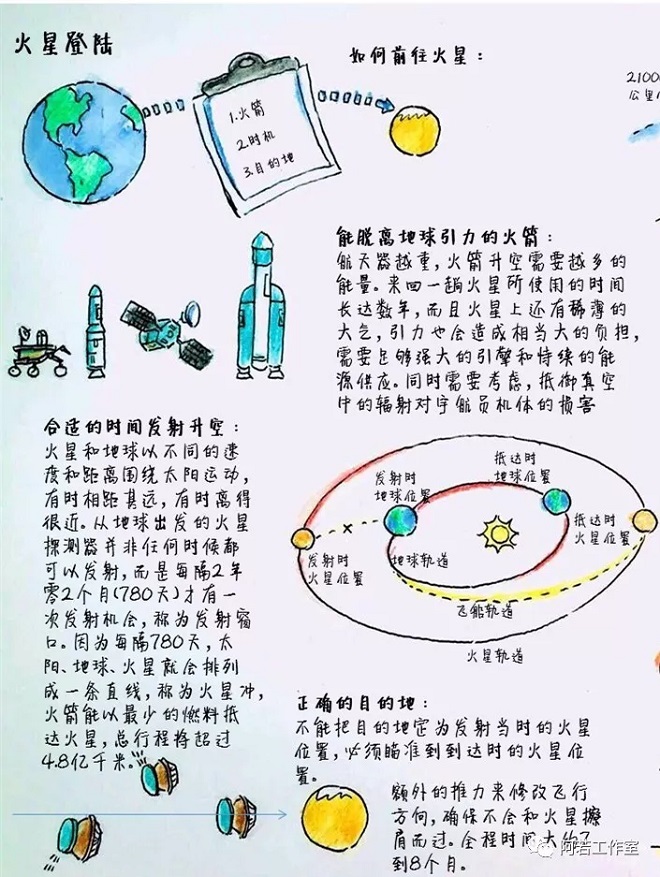 火星登陆
如何前往火星：
1.火箭
2.时机
3.目的地
2100
公里
能脱离地球引力的火箭：
航天器越重，火箭升空需要越多的
能量。来回一趟火星所使用的时间
长达数年，而且火星上还有稀薄的
大气，引力也会造成相当大的负担，
需要足够强大的引擎和持续的能
源供应。同时需要考虑，抵御真空
中的辐射对宇航员机体的损害
合适的时间发射升空：
火星和地球以不同的速
度和距离围绕太阳运动，
有时相距甚远，有时离得
很近。从地球出发的火星
探测器并非任何时候都
可以发射，而是每隔2年
零2个月(780天)才有一
次发射机会，称为发射窗
口。因为每隔780天，太
阳、地球、火星就会排列
成一条直线，称为火星冲，
火箭能以最少的燃料抵
达火星，总行程将超过
4.8亿千米。
发射时
地球位置
抵达时
地球位置
抵达时
火星位置
发射时
火星位置
地球轨道
飞船轨道
火星轨道
正确的目的地：
不能把目的地定为发射当时的火星
位置，必须瞄准到到达时的火星位
置。
额外的推力来修改飞行
方向，确保不会和火星擦
肩而过。全程时间大约7
到8个月。
阿若工作室